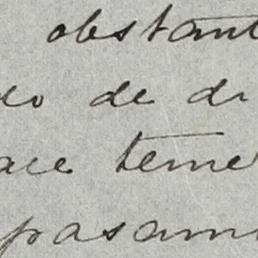 obstant
do de di
ace teme
pasam